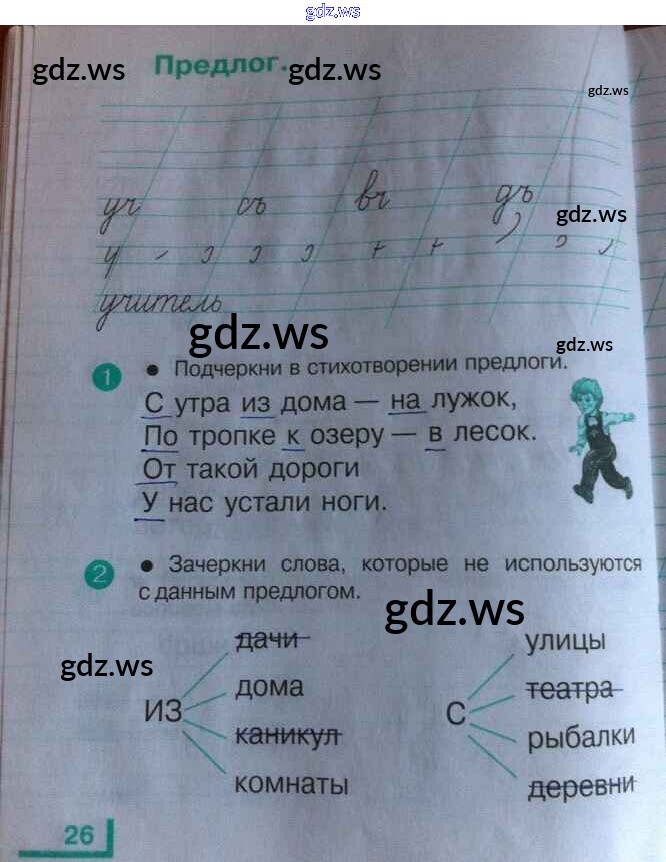 gdz.ws
gdz.ws Предлог. gdz.ws
gdz.ws
уч съ вч дъ
gdz.ws
у
учитель
gdz.ws
gdz.ws
1 • Подчеркни в стихотворении предлоги.
С утра из дома — на лужок,
По тропке к озеру — в лесок.
От такой дороги
У нас устали ноги.
2 • Зачеркни слова, которые не используются
с данным предлогом.
gdz.ws
gdz.ws
ИЗ
дачи
дома
каникул
комнаты
С
улицы
театра
рыбалки
деревни
26